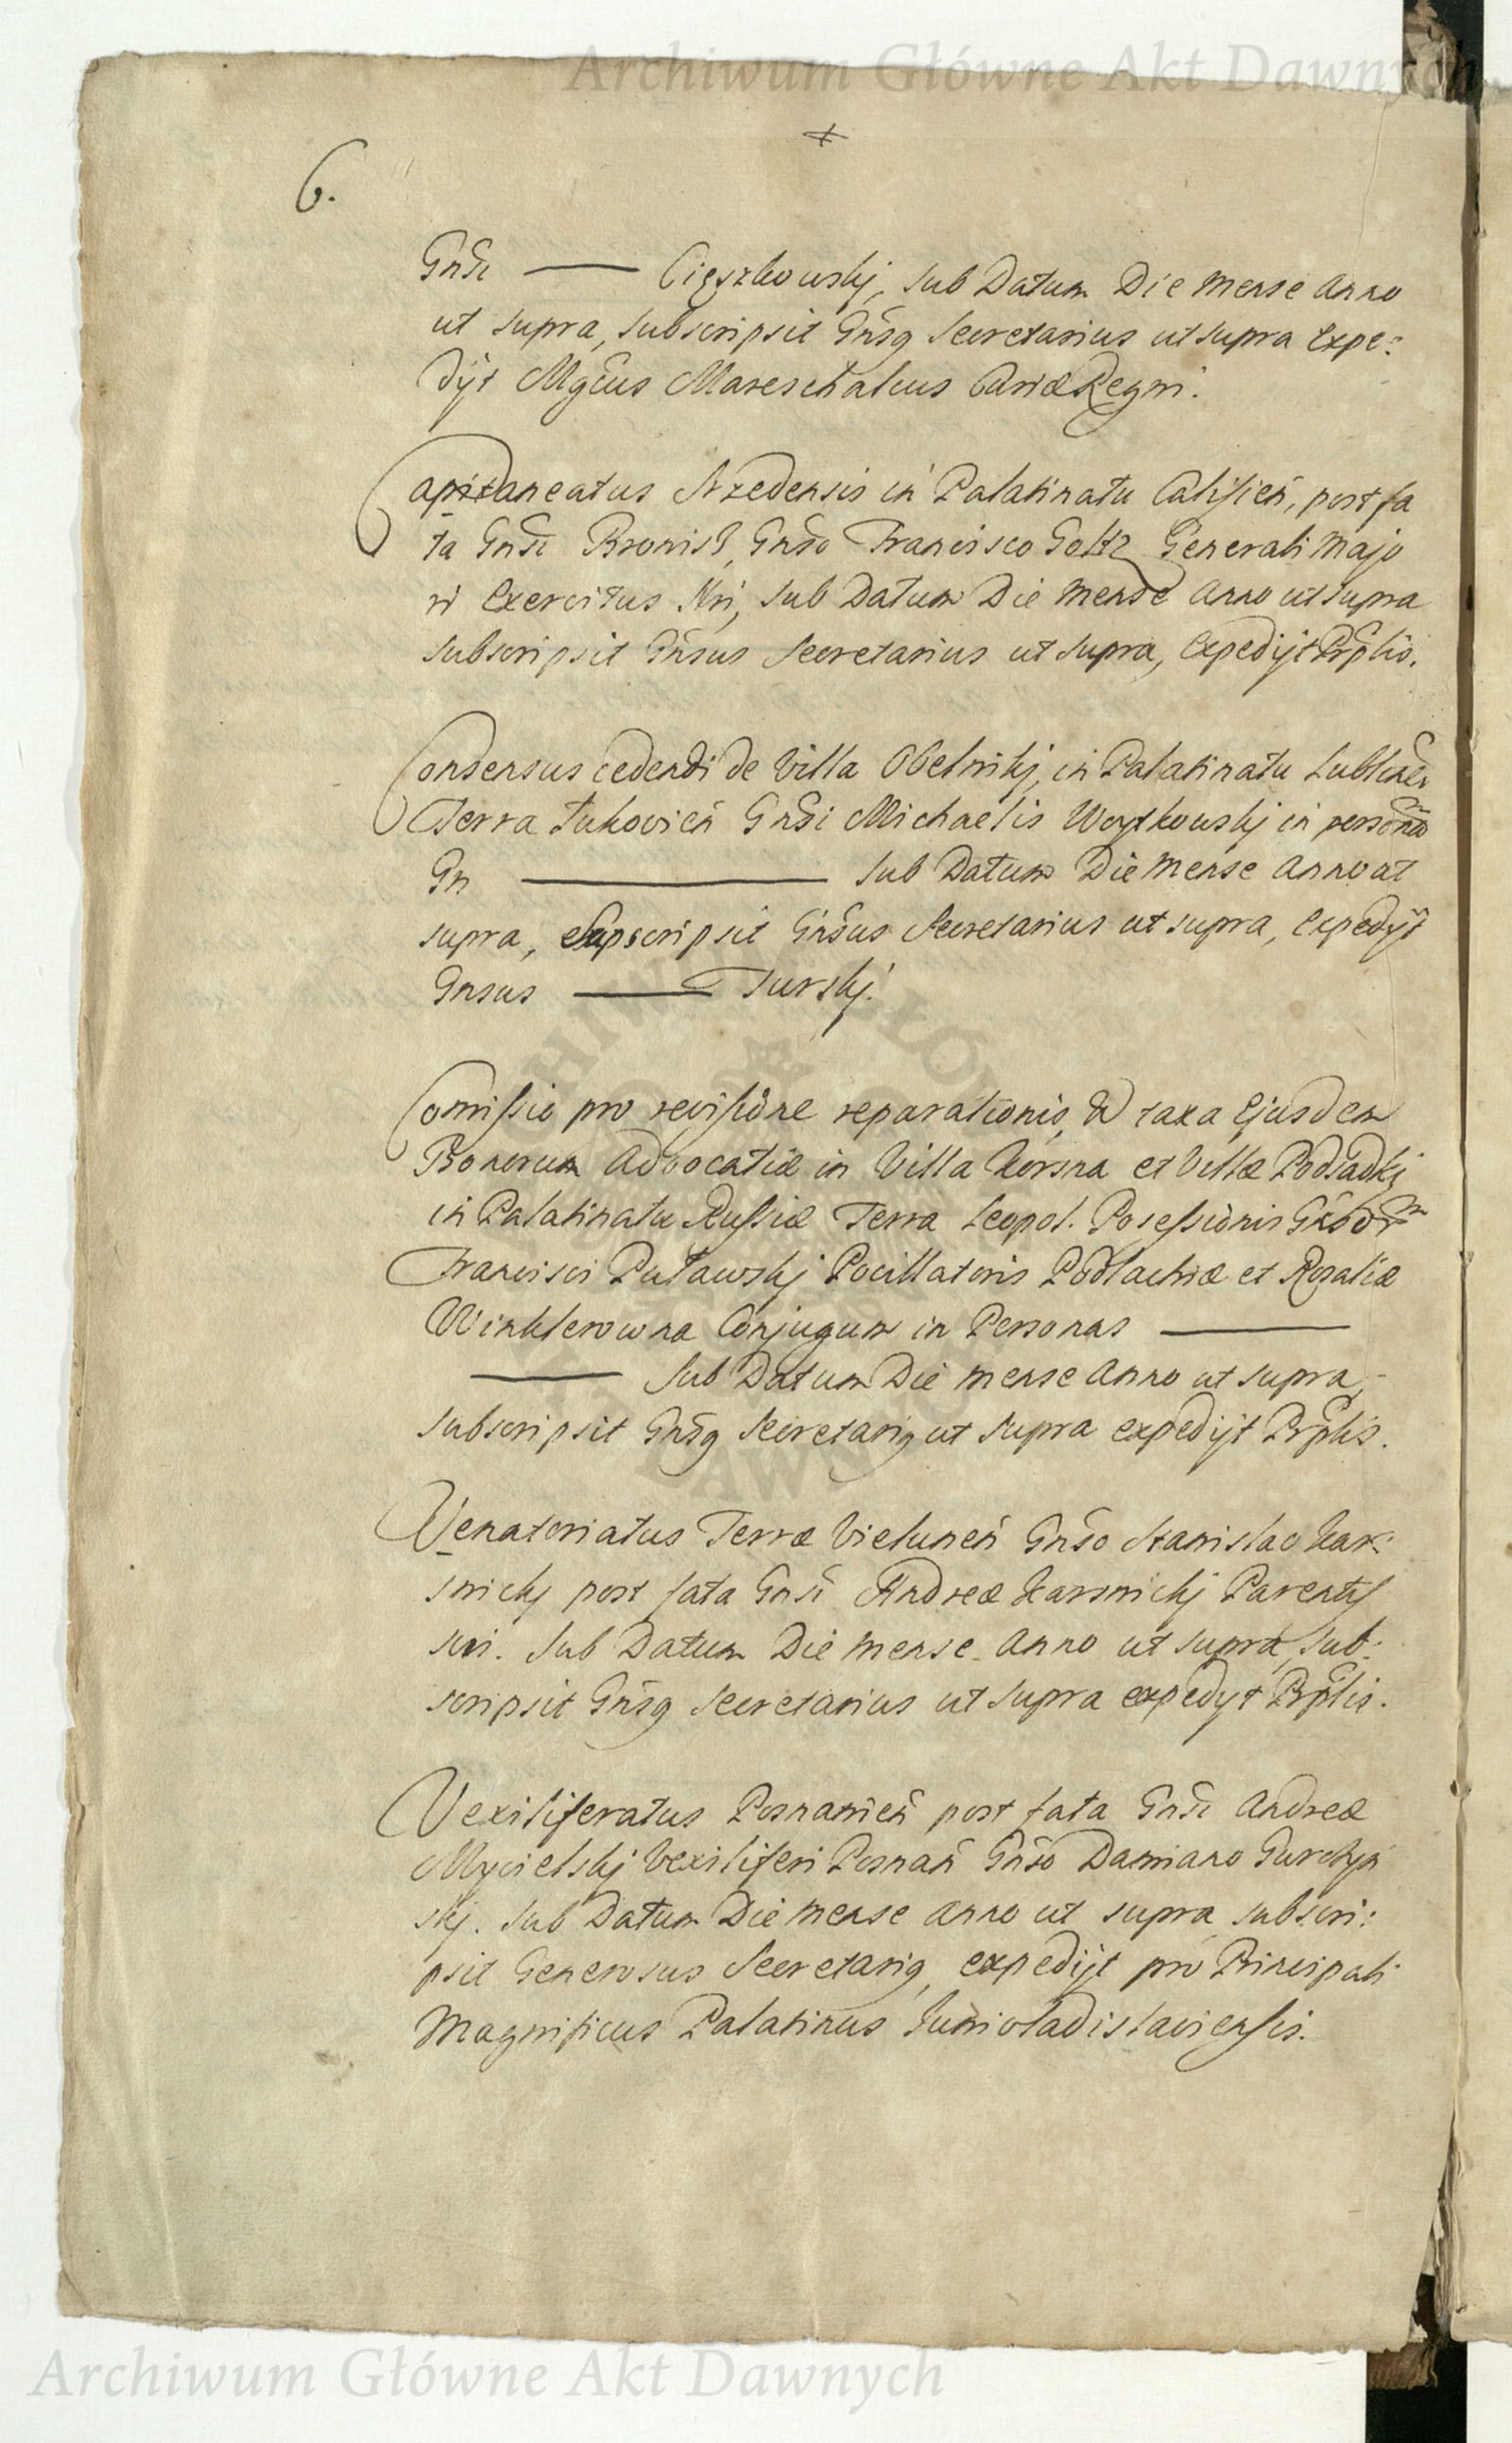 Archiwum Główne Akt Dawnych
6.
Gnsi — Cięszkowskj, sub Datum Die Mense Anno
ut supra, subscripsit Gnsq Secretarius ut supra Expe:
dijt Mgcus Mareschalcus Curiæ Regni.
Capitaneatus Srzedensis in Palatinatu Calisień, post fa
ta Gnsi Bronisz, Gnso Francisco Goltz Generali Majo
ri Exercitus Nri, sub Datum Die Mense Anno ut supra
subscripsit Gnsus Secretarius ut supra, Expedijt Prplis.
Consensus cedendi de Villa Obelnikj, in Palatinatu Lublineń
Terra Łukovień Gnsi Michaelis Woytkowskj in personas
Gn — sub Datum Die Mense Anno ut
supra, supscripsit Gnsus Secretarius ut supra, Expedijt
Gnsus — Turskj.
Comissio pro revisione reparationis, et taxa Ejusdem
Bonorum Advocatiæ in Villa Horsna et Villæ Podsadkj
in Palatinatu Russiæ Terra Leopol. Posessionis Gnsorm
Francisci Puławskj Pocillatoris Podlachiæ et Rosaliæ
Winklerowna Conjugum in Personas —
— sub Datum Die Mense Anno ut supra,
subscripsit Gnsq Secretariq ut supra expedijt Prplis.
Venatoriatus Terræ Vieluneń Gnso Stanislao Kar:
snickj post fata Gnsi Andreæ Karsnickj Parentis
sui. Sub Datum Die Mense Anno ut supra, sub:
scripsit Gnsq Secretarius ut supra expedijt Prplis.
Vexiliferatus Posnanień post fata Gnsi Andreæ
Mycielskj Vexiliferi Posnań Gnso Damiano Gurczyń
skj. Sub Datum Die Mense Anno ut supra subscri:
psit Generosus Secretariq, expedijt pro Principali
Magnificus Palatinus Junivladislaviensis.
Archiwum Główne Akt Dawnych